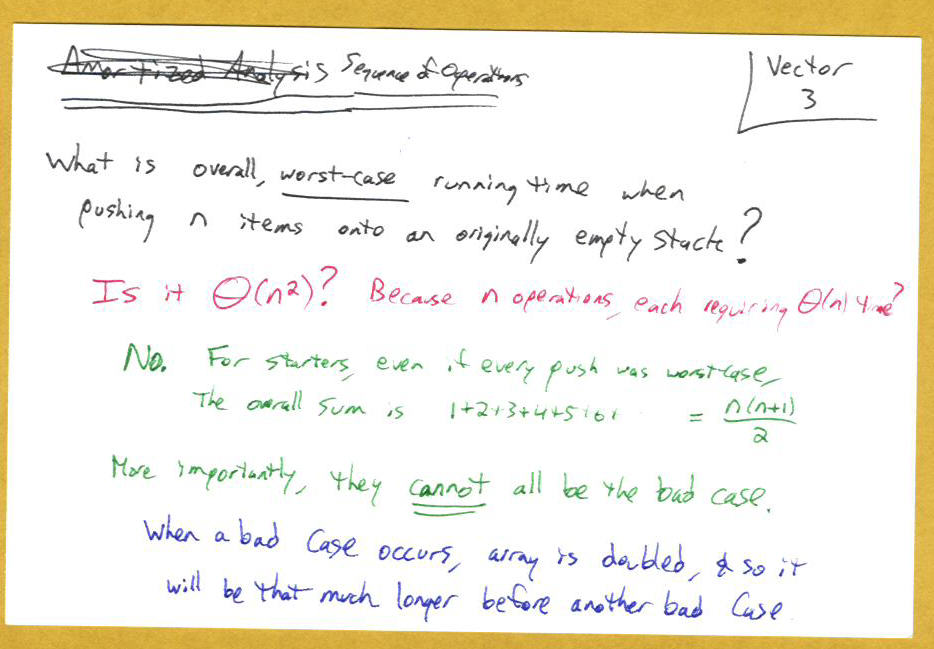 Amortized Analysis Sequence of Operations
Vector
3
What is overall, worst-case running time when
pushing n items onto an originally empty stack?
Is it Θ(n²)? Because n operations, each requiring Θ(n) time?
No. For starters, even if every push was worst-case,
The overall sum is 1+2+3+4+5+6+ = n(n+1)
2
More importantly, they cannot all be the bad case.
When a bad case occurs, array is doubled, & so it
will be that much longer before another bad case.